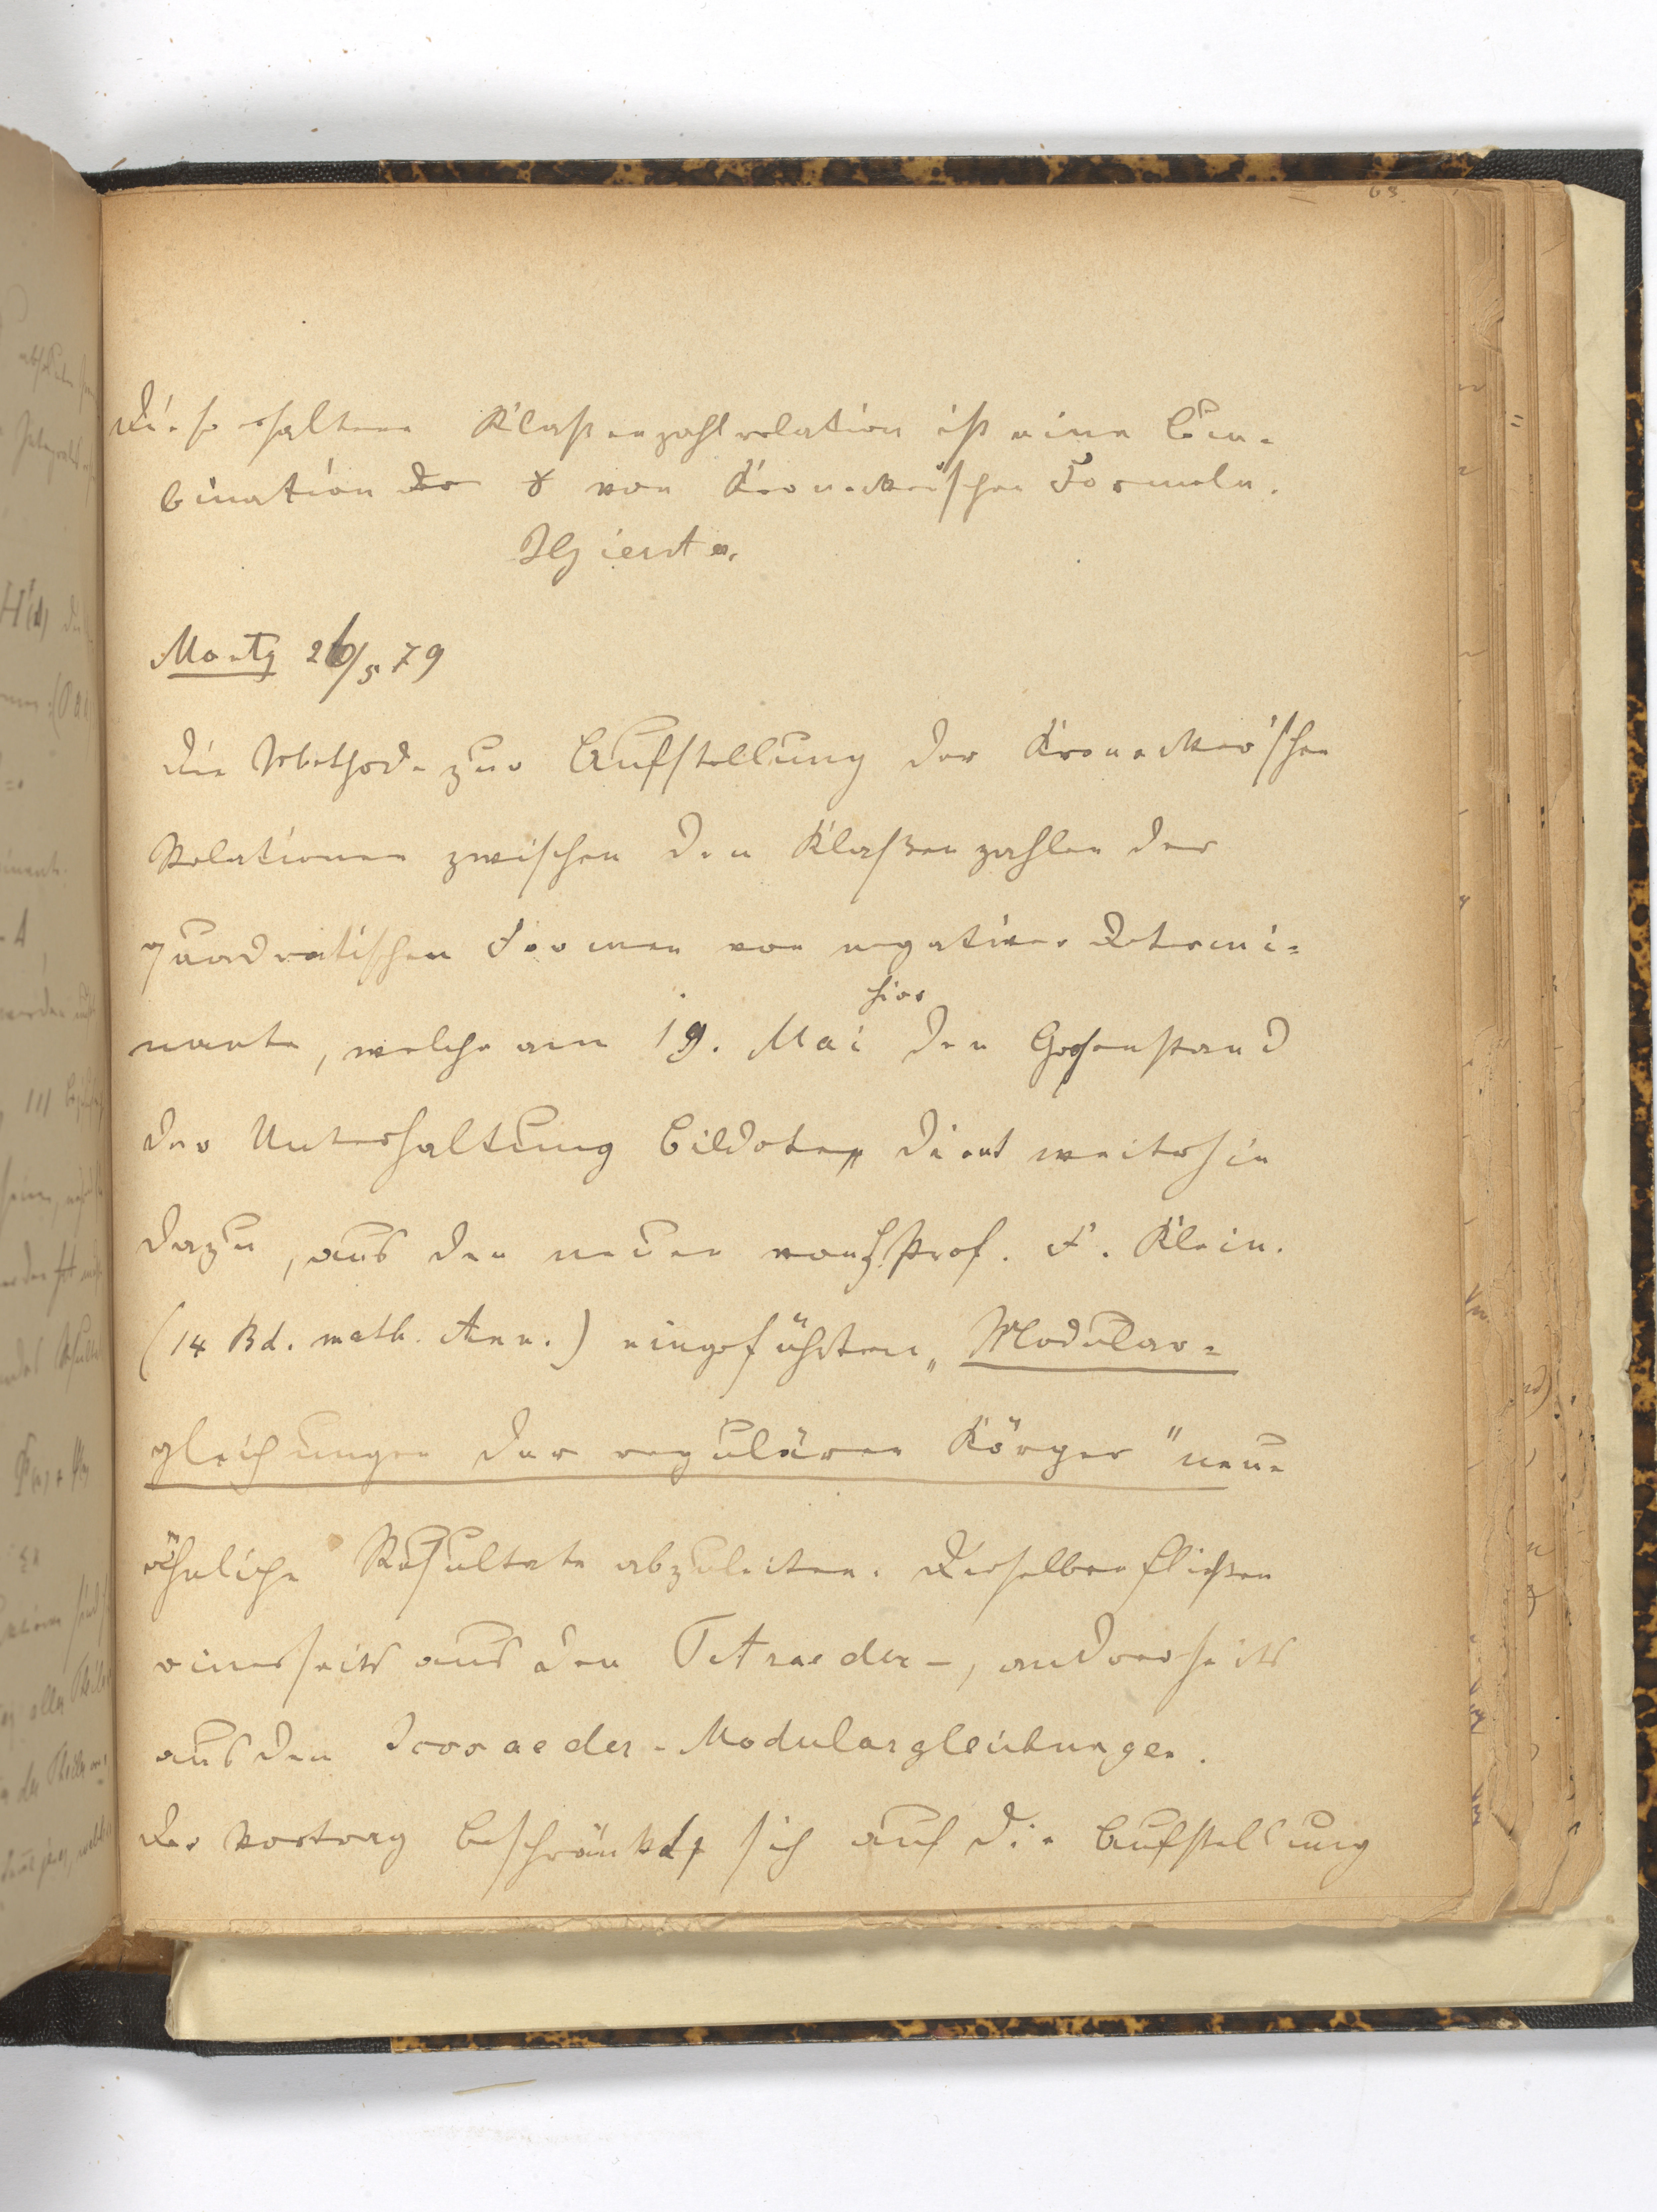 63.
Die so erhaltene Klaßenzahlrelation ist eine Com-
bination der 8 von Kronecker'schen Formeln.
JGierster.
Montg 26/5 79
Die Methode zur Aufstellung der Kronecker'schen
Relationen zwischen den Klaßenzahlen der
quadratischen Formen von negativer Determi=
nante, welche am 19. Mai hier den Gegenstand
der Unterhaltung bildete, dient weiterhin
dazu, aus den neuen von H. Prof. F. Klein.
(14 Bd. math. Ann.) eingeführten „Modular=
gleichungen der regulären Körper" neue
ähnliche Resultate abzuleiten. Dieselben fließen
einerseits aus den Tetraeder-, anderseits
aus den Icosaeder-Modulargleichungen.
Der Vortrag beschränkte sich auf die Aufstellung